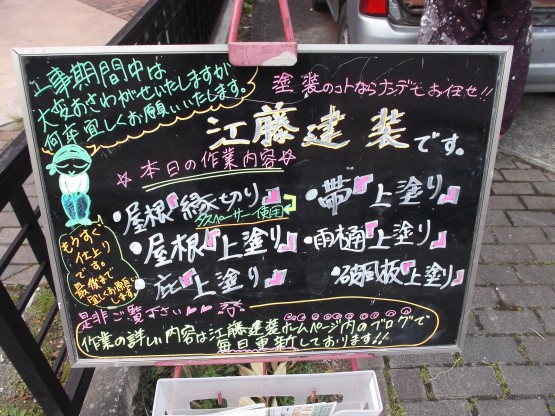 工事期間中は
大変おさわがせいたしますが
何卒宜しくお願いいたします。
塗装のコトならナンデモお任せ!!
江藤建装です。
☆本日の作業内容☆
・屋根『縁切り』
タスペーサー使用
・屋根『上塗り』
・庇『上塗り』
・帯『上塗り』
・雨樋『上塗り』
・破風板『上塗り』
もうすぐ
仕上り
です。
最後まで
宜しくお願い
します。
是非ご覧下さい♪♪
作業の詳しい内容は江藤建装ホームページ内のブログで
毎日更新しております!!